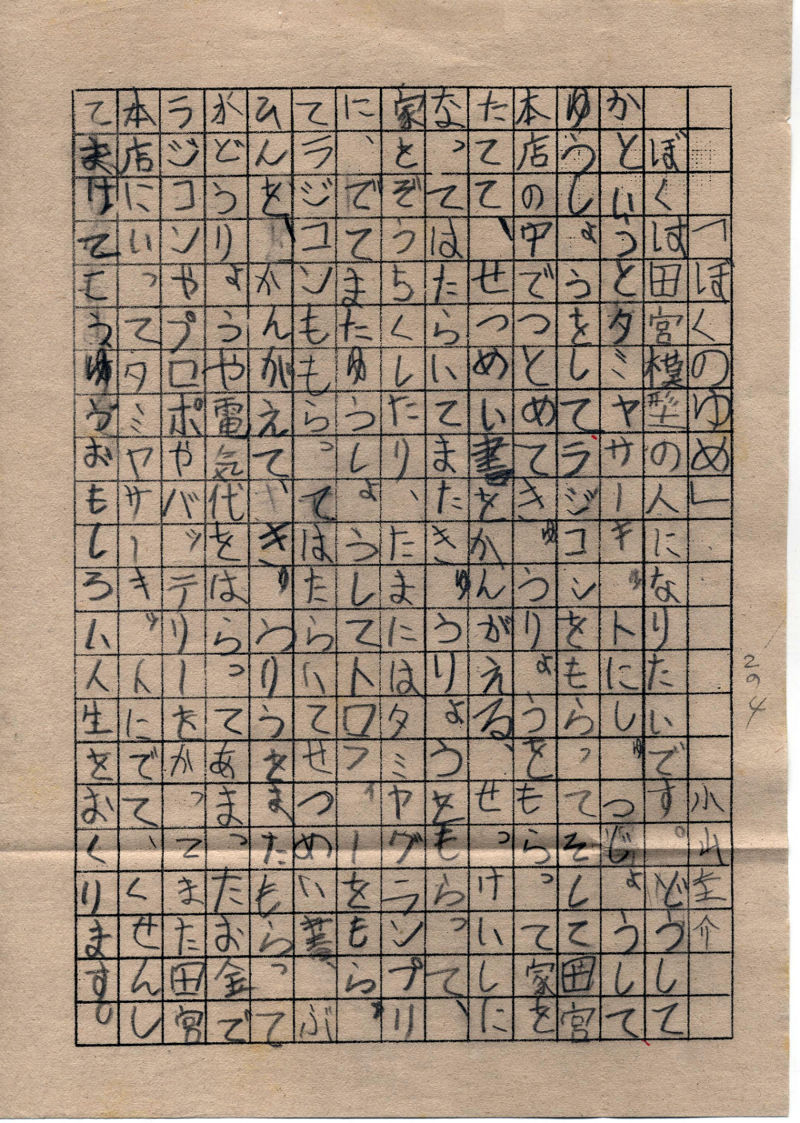 「ぼくのゆめ」 小山圭介
ぼくは田宮模型の人になりたいです。どうして
かというとタミヤサーキットにしゅつじょうして
ゆうしょうをしてラジコンをもらってそして田宮
本店の中でつとめてきゅうりょうをもらって家を
たてて、せつめい書をかんがえる、せっけいしに
なってはたらいてまたきゅうりょうをもらって、
家とぞうちくしたり、たまにはタミヤグランプリ
に、でてまたゆうしょうしてトロフィーをもらっ
てラジコンももらってはたらいてせつめい書、ぶ
ひんを、かんがえて、きゅうりうをまたもらって
がどうりょうや電気代をはらってあまったお金で
ラジコンやプロポやバッテリーをかってまた田宮
本店にいってタミヤサーキットにでて、くせんし
てまけてもうゆうおもしろい人生をおくります。
204